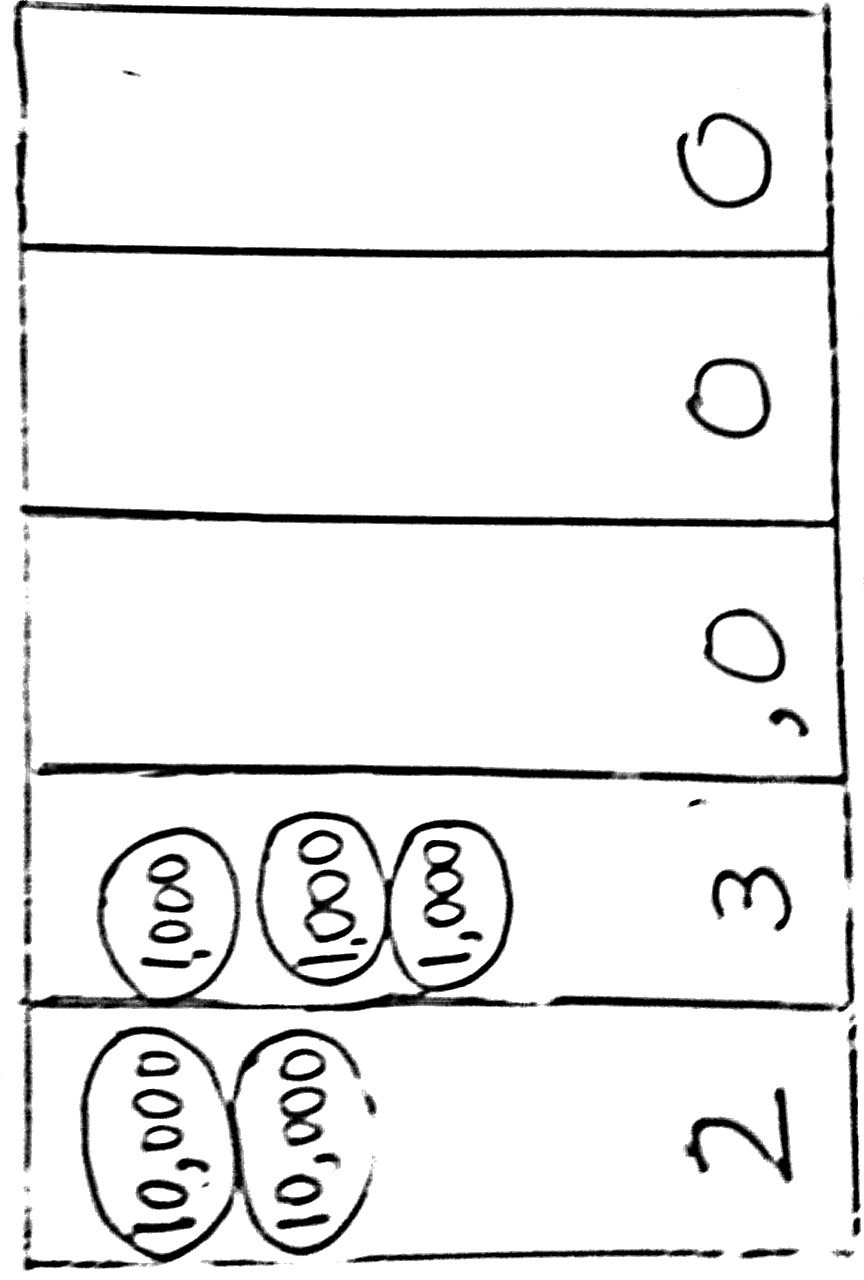 10,000 1,000
10,000 1,000
1,000
2 3 ,0 0 0